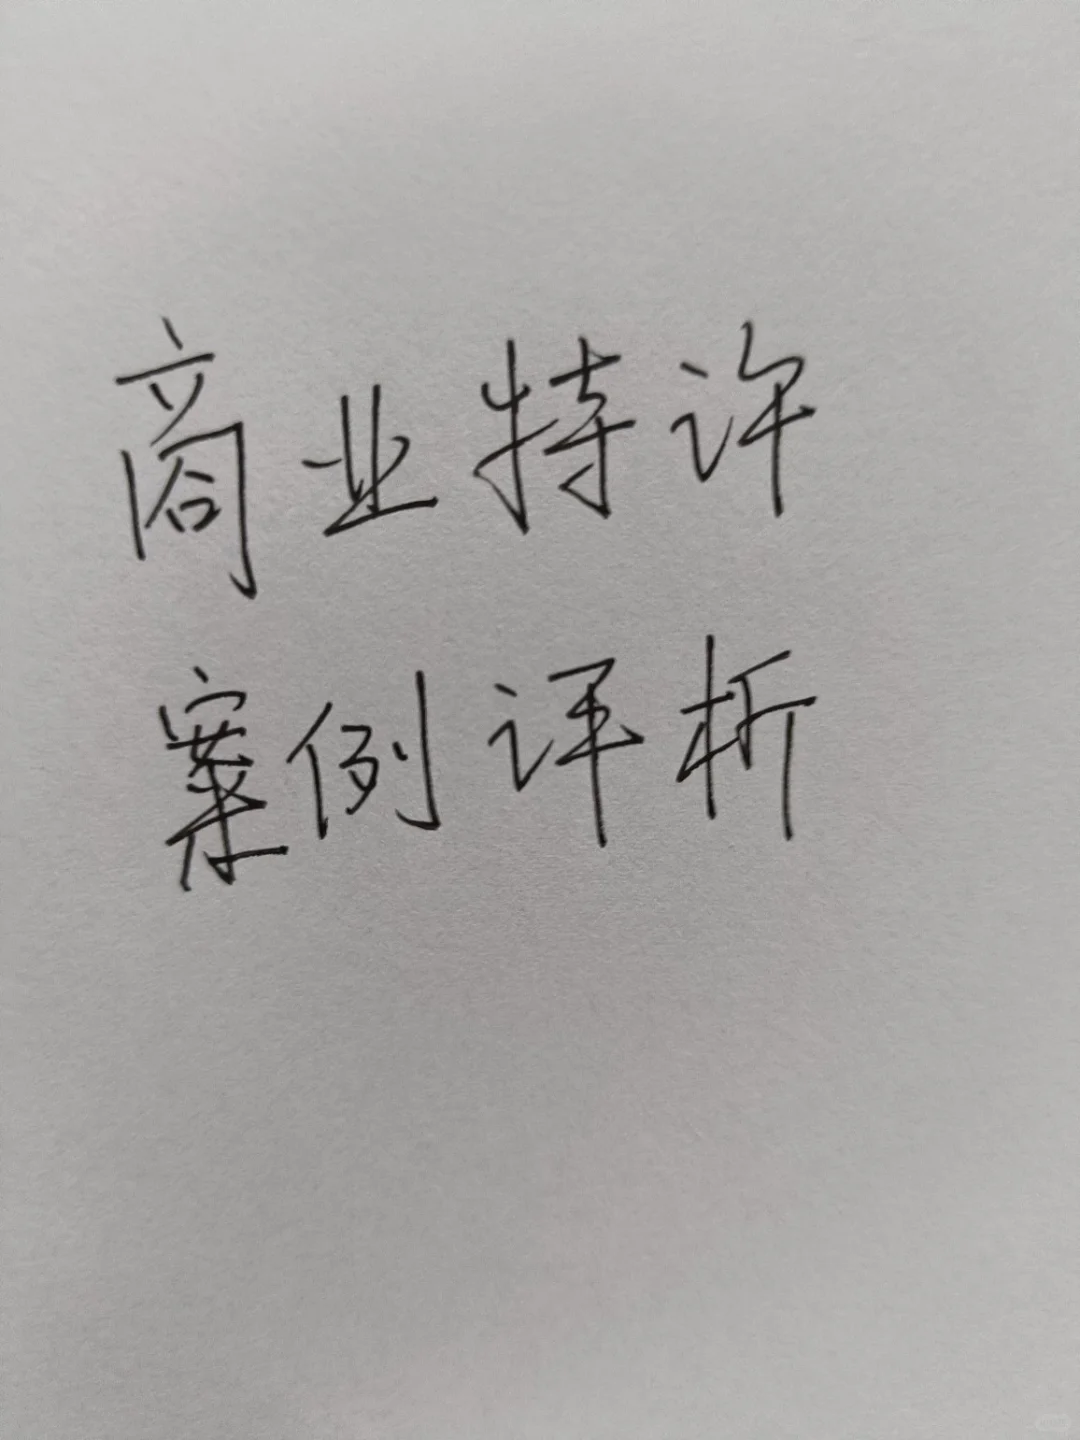 商业特许
案例评析